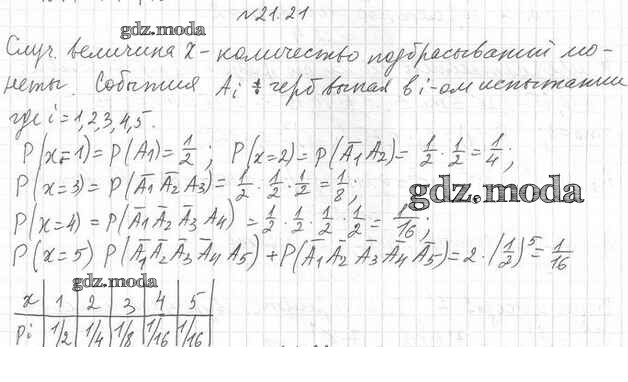 №21.21
gdz.moda
Случ. величина X - количество подбрасываний мо-
неты. События Ai : герб выпал в i-ом испытании
где i = 1,2,3,4,5.
P(x=1) = P(A1) = 1/2 ; P(x=2) = P(A̅1 A2) = 1/2 · 1/2 = 1/4 ;
P(x=3) = P(A̅1 A̅2 A3) = 1/2 · 1/2 · 1/2 = 1/8 ;
gdz.moda
P(x=4) = P(A̅1 A̅2 A̅3 A4) = 1/2 · 1/2 · 1/2 · 1/2 = 1/16 ;
P(x=5) P(A̅1 A̅2 A̅3 A̅4 A5) + P(A̅1 A̅2 A̅3 A̅4 A̅5) = 2 · (1/2)⁵ = 1/16
gdz.moda
x | 1 | 2 | 3 | 4 | 5
pi | 1/2 | 1/4 | 1/8 | 1/16 | 1/16